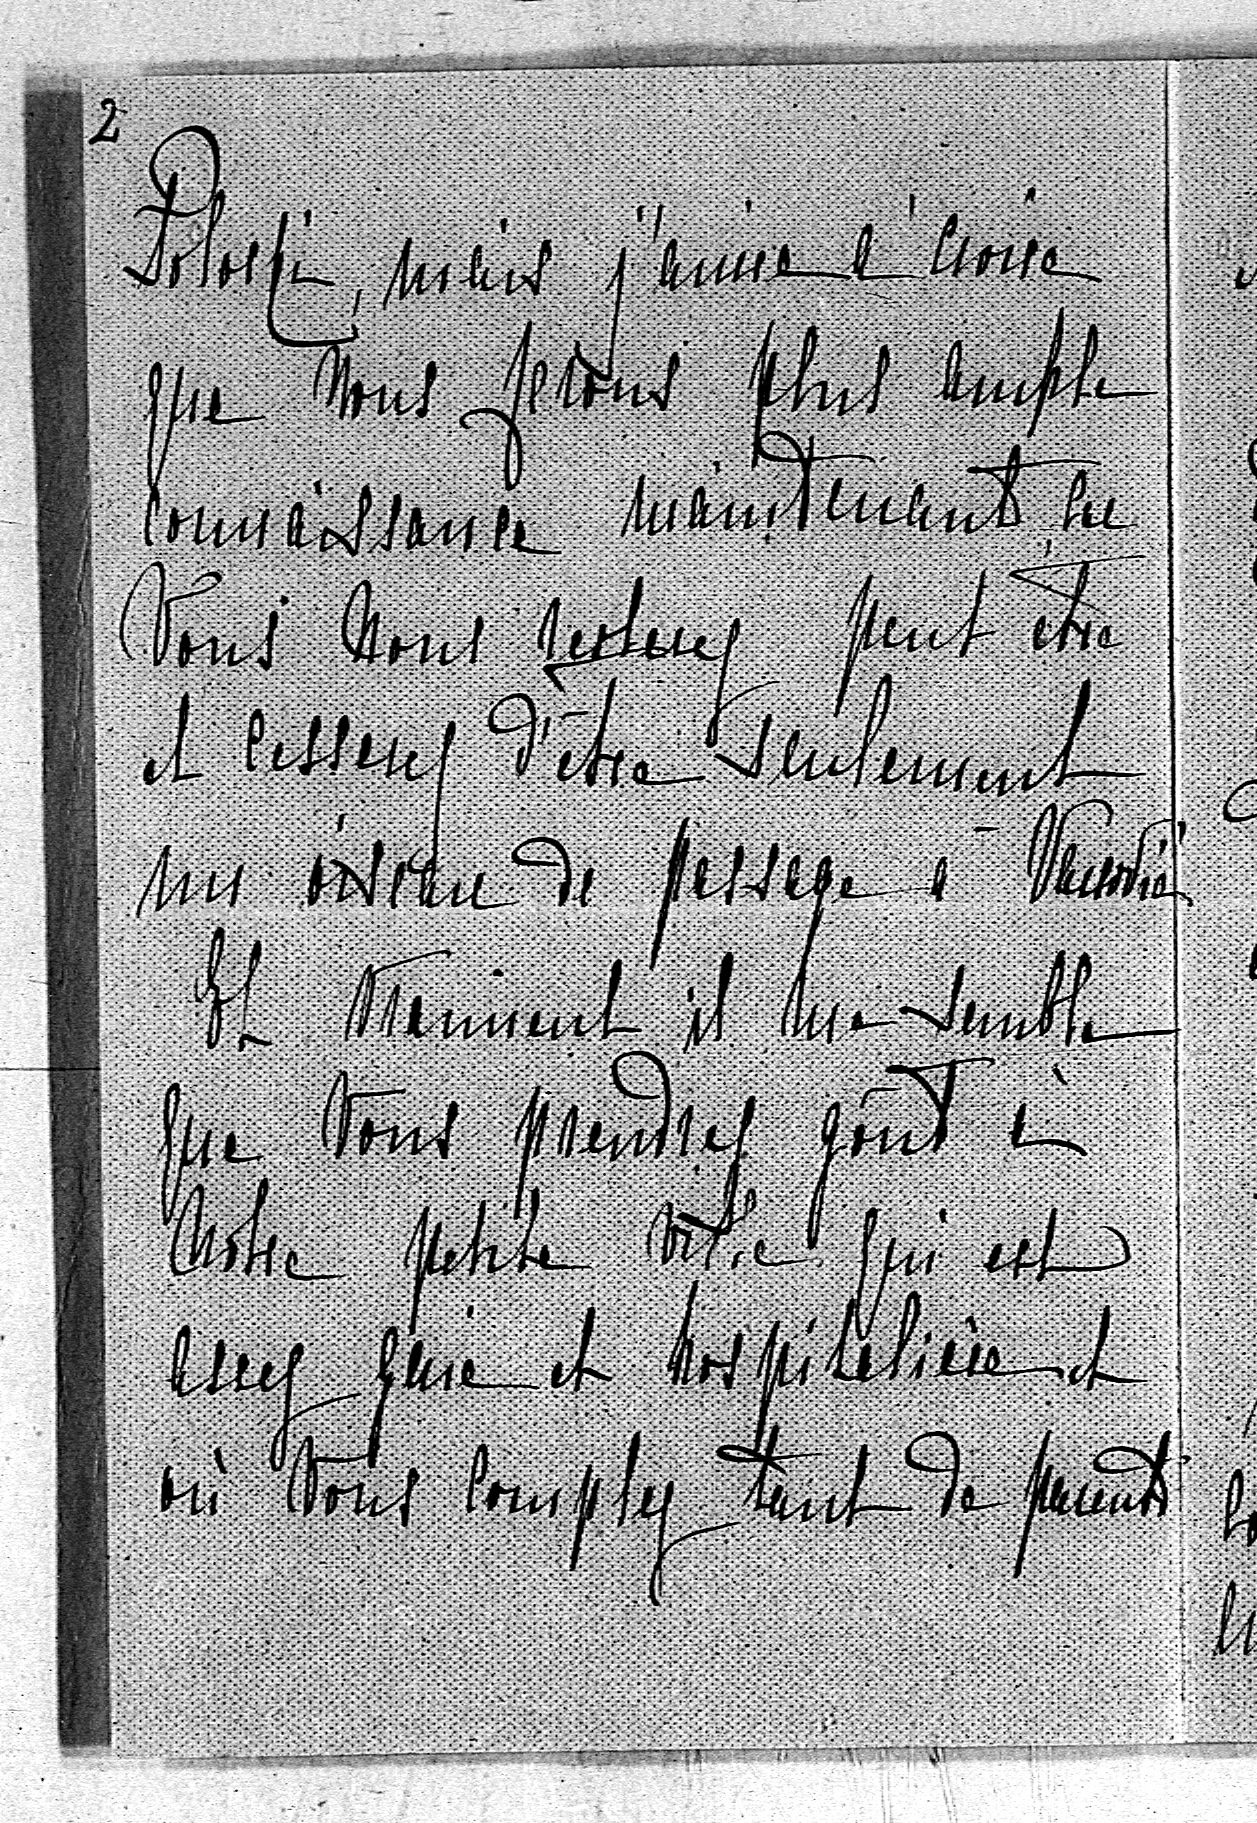 2
Potocki, mais j'aime à croire
que nous ferons plus ample
connaissance maintenant que
Vous nous resterez peut être
et cesserez d'être seulement
un oiseau de passage à Varsovie
Et vraiment il me semble
que Vous prendrez goût à
notre petite ville qui est
assez gaie et hospitalière et
où Vous comptez tant de parents